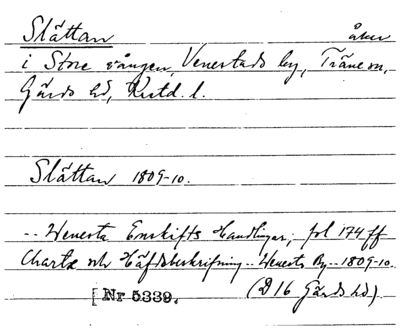 Slättan åker
i Store vången, Venestads by, Träne sn,
Gärds hd, Kristd. l.
Slättan 1809-10.
-- Wenesta Enskifts Handlingar, fol 174 ff
Charta och Häfdebeskrifning -- Wenesta By -- 1809-10.
[Nr 5339. (D 16 Gärds hd.)